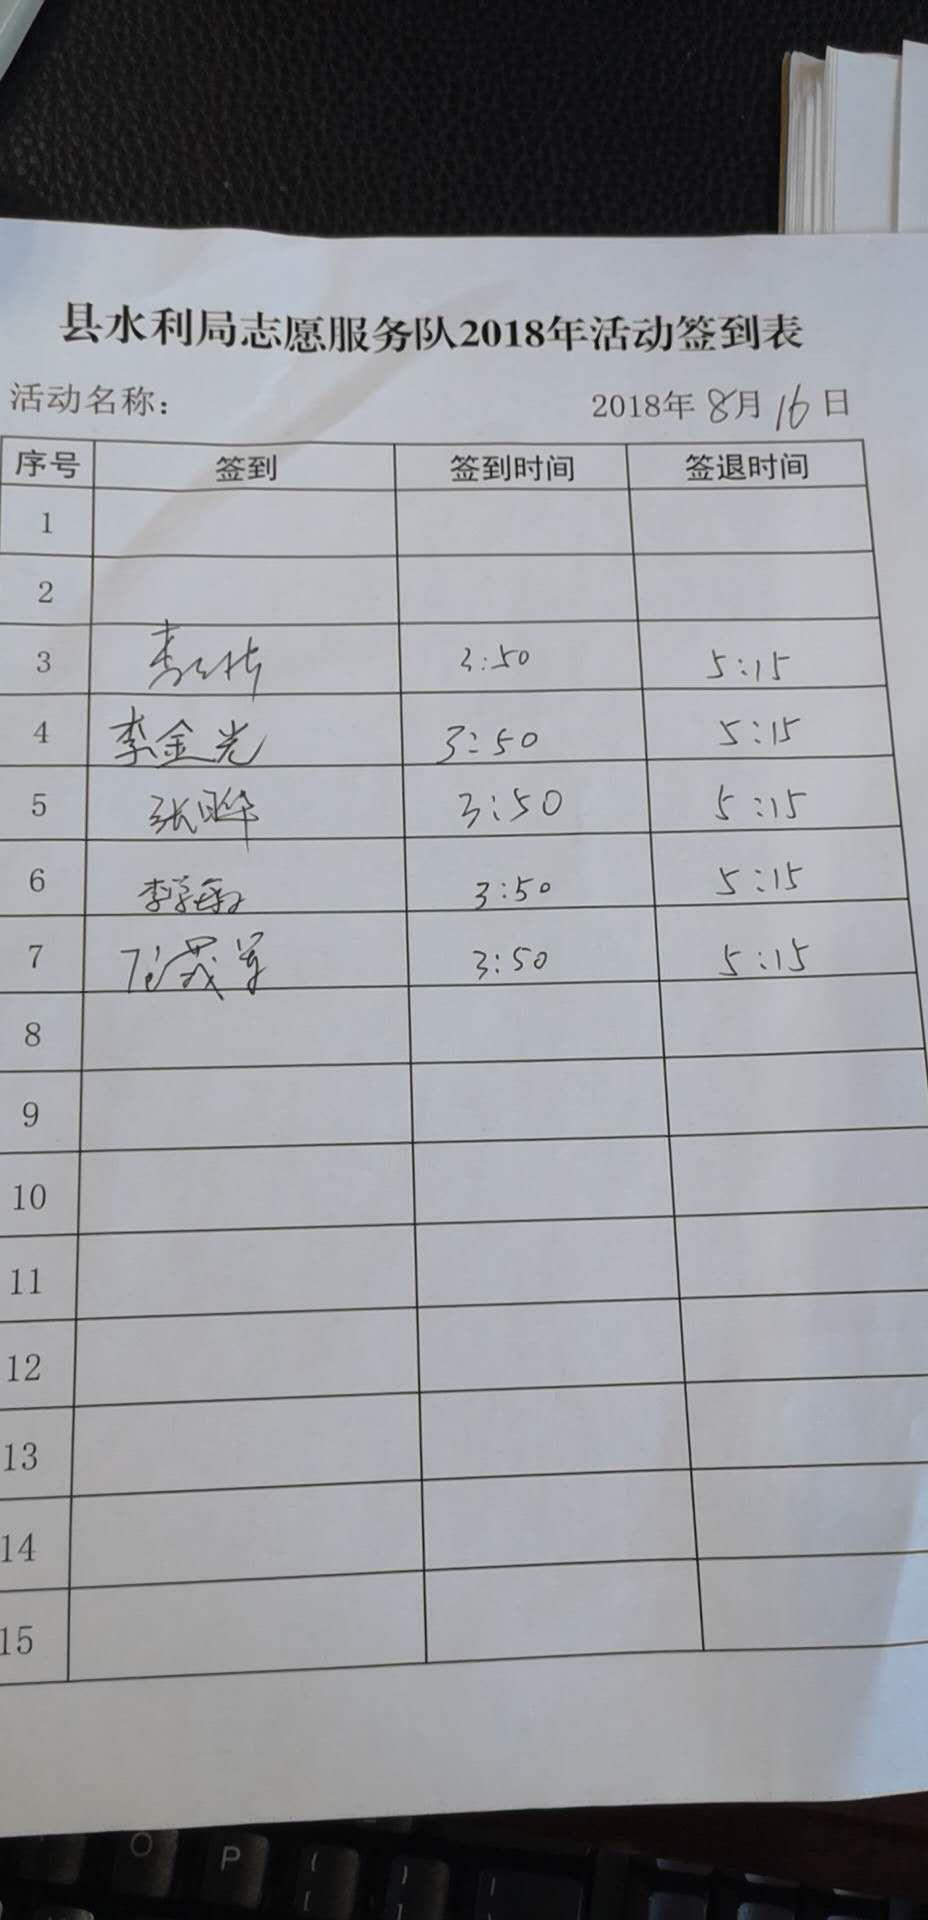 县水利局志愿服务队2018年活动签到表
活动名称： 2018年 8月 16日
序号 签到 签到时间 签退时间
1
2
3 3:50 5:15
4 李金光 3:50 5:15
5 张晔 3:50 5:15
6 3:50 5:15
7 3:50 5:15
8
9
10
11
12
13
14
15
O
P
{
[
}
]